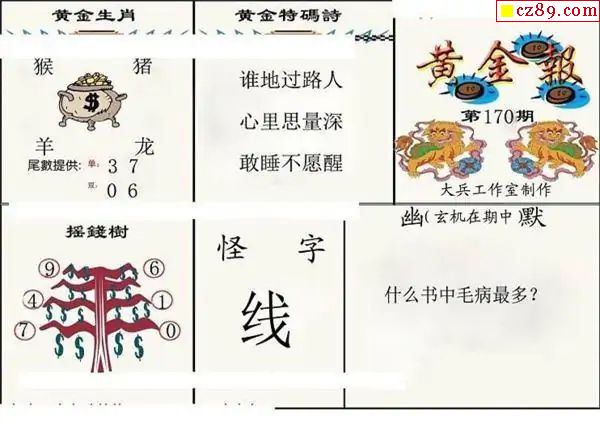 cz89.com
黄金生肖
猴 猪
羊 龙
尾數提供: 单: 3 7
双: 0 6
黄金特碼詩
谁地过路人
心里思量深
敢睡不愿醒
黄金報
第170期
大兵工作室制作
摇錢樹
9 6
4 1
7 0
怪 字
线
幽(玄机在期中)默
什么书中毛病最多?